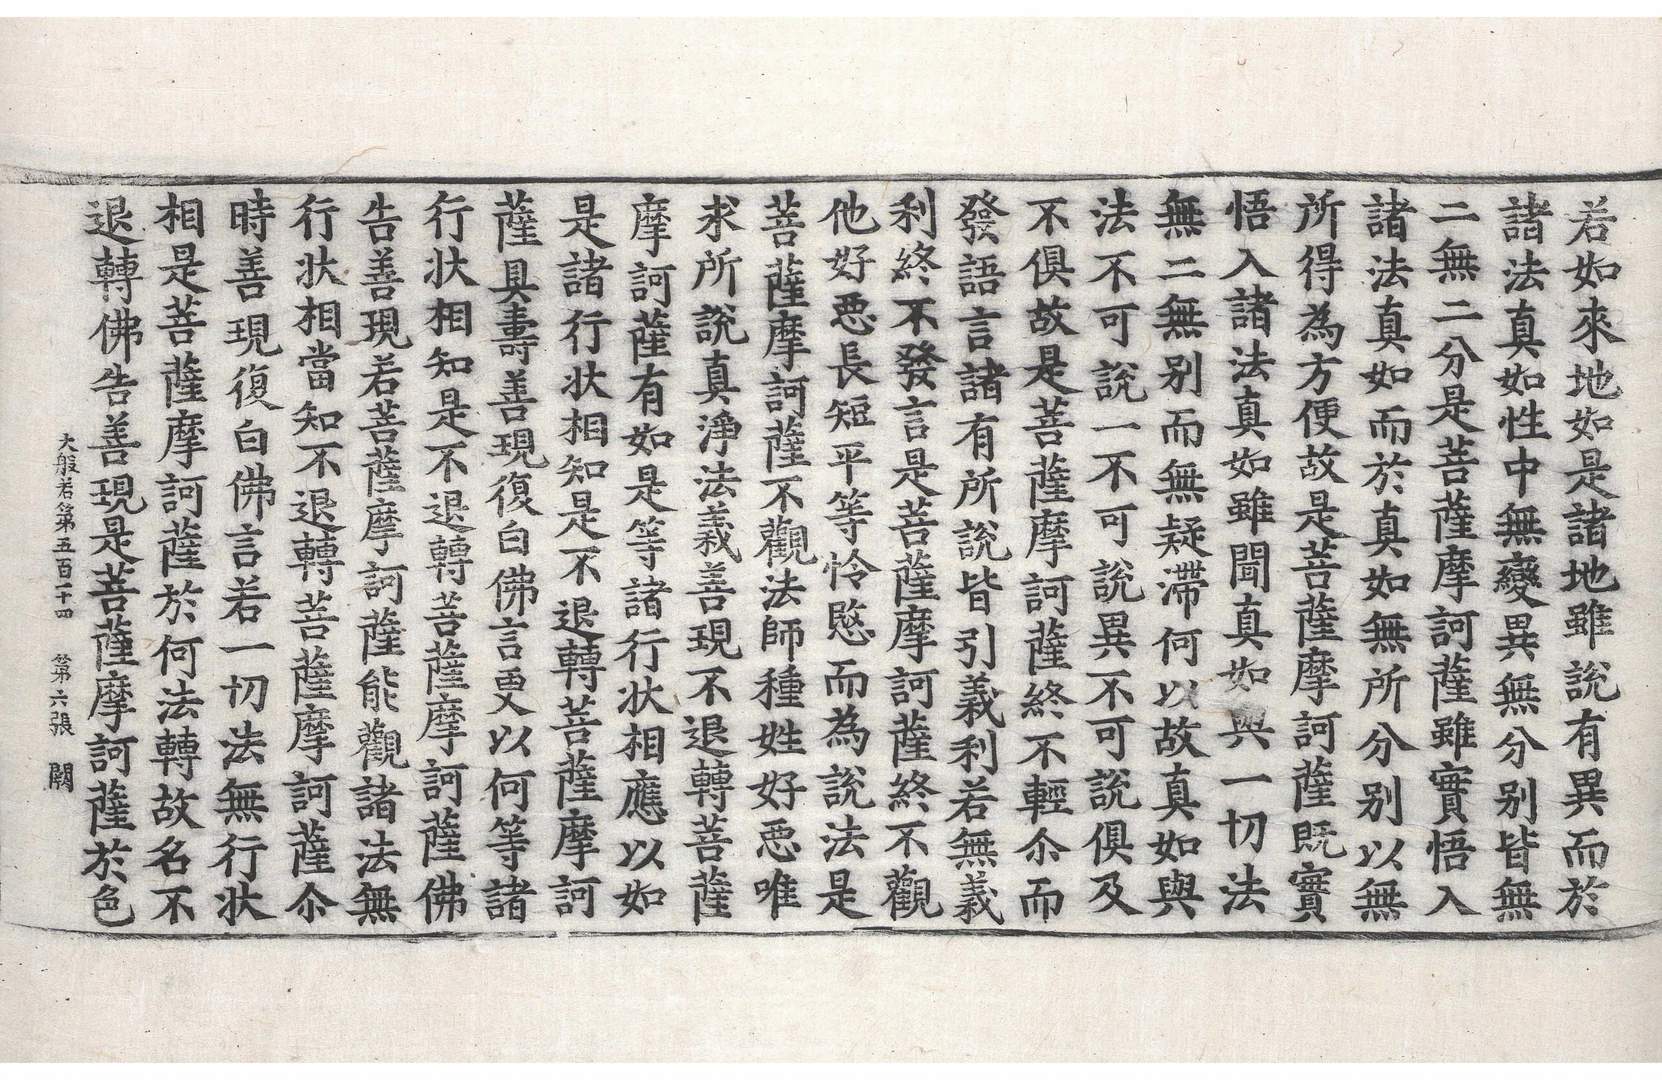 若如來地如是諸地雖說有異而於
諸法真如性中無變異無分別皆無
二無二分是菩薩摩訶薩雖實悟入
諸法真如而於真如無所分別以無
所得為方便故是菩薩摩訶薩既實
悟入諸法真如雖聞真如與一切法
無二無別而無疑滯何以故真如與
法不可說一不可說異不可說俱及
不俱故是菩薩摩訶薩終不輕尒而
發語言諸有所說皆引義利若無義
利終不發言是菩薩摩訶薩終不觀
他好惡長短平等怜愍而為說法是
菩薩摩訶薩不觀法師種姓好惡唯
求所說真淨法義善現不退轉菩薩
摩訶薩有如是等諸行狀相應以如
是諸行狀相知是不退轉菩薩摩訶
薩具壽善現復白佛言更以何等諸
行狀相知是不退轉菩薩摩訶薩佛
告善現若菩薩摩訶薩能觀諸法無
行狀相當知不退轉菩薩摩訶薩尒
時善現復白佛言若一切法無行狀
相是菩薩摩訶薩於何法轉故名不
退轉佛告善現是菩薩摩訶薩於色
大般若第五百一十四 第六張 闕